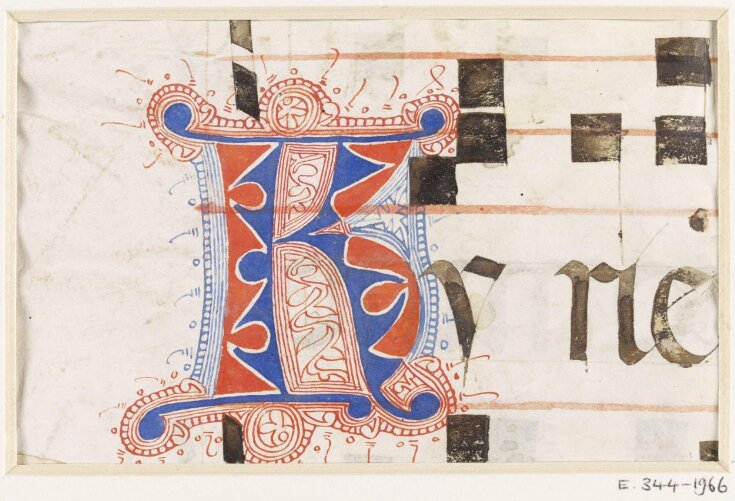 Kyrie
E. 344-1966